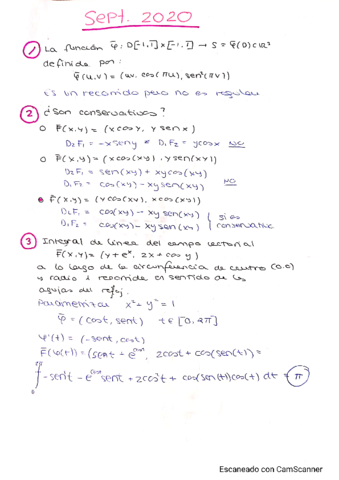 Sept. 2020
① La función φ̄: D[-1,1]×[-1,1] → S = φ̄(D) ⊂ ℝ³
definida por:
φ̄(u,v) = (uv, cos(πu), sen(πv))
Es un recorrido pero no es regular
② ¿Son conservativos?
○ F̄(x,y) = (x cos y, y sen x)
D₂F₁ = -x sen y ≠ D₁F₂ = y cos x NO
○ F̄(x,y) = (x cos(xy), y sen(xy))
D₂F₁ = sen(xy) + xy cos(xy)
D₁F₂ = cos(xy) - xy sen(xy) NO
F̄(x,y) = (y cos(xy), x cos(xy))
D₂F₁ = cos(xy) - xy sen(xy) } si es
D₁F₂ = cos(xy) - xy sen(xy) conservativo
③ Integral de línea del campo vectorial
F̄(x,y) = (y + eˣ, 2x + cos y)
a lo largo de la circunferencia de centro (0,0)
y radio 1 recorrida en sentido de las
agujas del reloj.
Parametrizar x² + y² = 1
φ̄ = (cos t, sen t) t ∈ [0, 2π]
φ'(t) = (-sen t, cos t)
F̄(φ(t)) = (sen t + e^cos t, 2cos t + cos(sen(t)) =
∫ -sen²t - e^cos t sen t + 2cos²t + cos(sen(t))cos(t) dt = π
Escaneado con CamScanner